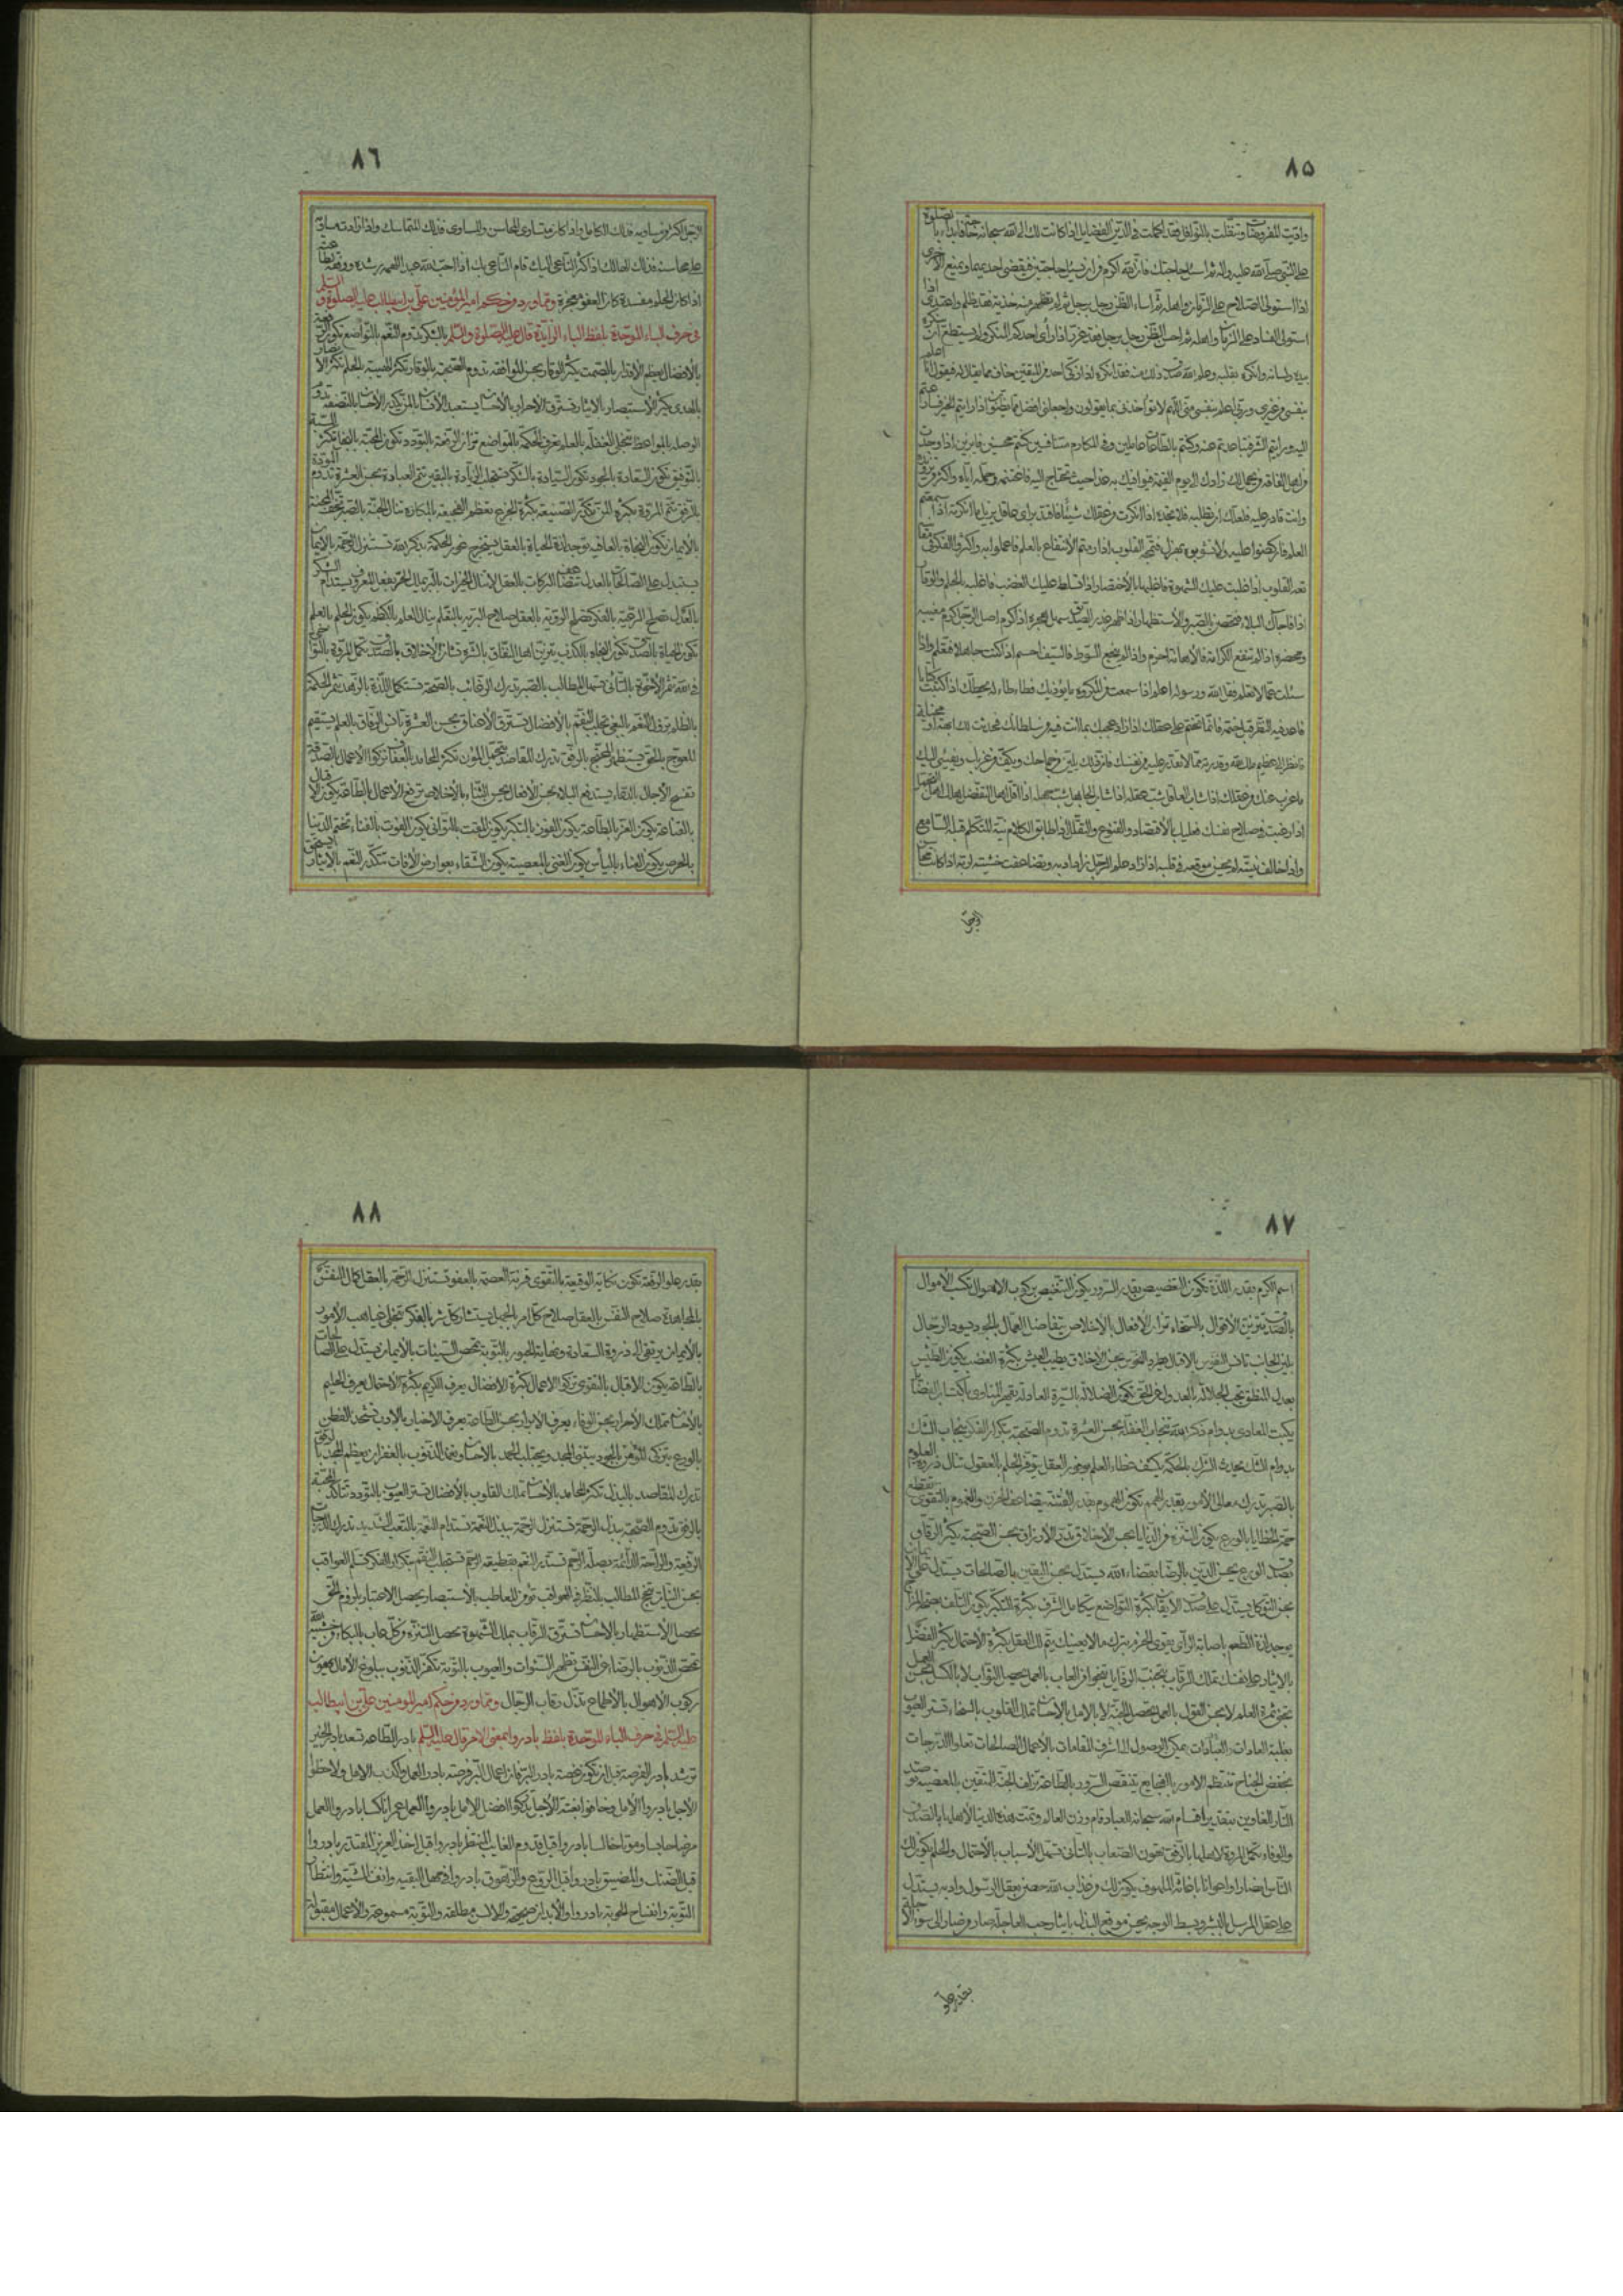 ٨٥
واديت المفروضات وتنفلت بالنوافل فقد اكملت في الدين الفضايل اذا كانت لك الى الله سبحانه حاجة فابدأ بالصلوة
على النبي صلى الله عليه واله ثم اسئل حاجتك فان الله اكرم من ان يسئل حاجتين فيقضي احديهما ويمنع الاخرى
اذا استولى الصلاح على الزمان واهله ثم اساء الظن رجل برجل لم تظهر منه خزية فقد ظلم واعتدى اذا
استولى الفساد على الزمان واهله ثم احسن الظن رجل برجل فقد غرر اذا رأى احدكم المنكر ولم يستطع ان ينكره
بيده ولسانه وانكره بقلبه وعلم الله صدق ذلك منه فقد انكره اذا زكى احد من المتقين خاف مما يقال له فيقول انا اعلم
بنفسي من غيري وربي اعلم بنفسي مني اللهم لا تؤاخذني بما يقولون واجعلني افضل مما يظنون اذا رايتم الخير فسارعتم
اليه ورايتم الشر فتباعدتم عنه وكنتم بالطاعات عاملين وفي المكارم متنافسين كنتم محسنين فايزين اذا وجدت
من اهل الفاقة من يحمل لك زادك الى يوم القيمة فيوافيك به غدا حيث تحتاج اليه فاغتنمه وحمله اياه واكثر من تزويده
وانت قادر عليه فلعلك ان تطلبه فلا تجده اذا انكرت من عقلك شيئا فاقتد براى عاقل يزيل ما انكرته اذا سمعتم
العلم فاكظموا عليه ولا تشوبوه بهزل فتمجه القلوب اذا رمتم الانتفاع بالعلم فاعملوا به واكثروا الفكر في معانيه
تعه القلوب اذا غلبت عليك الشهوة فاغلبها بالاختصار اذا تسلط عليك الغضب فاغلبه بالحلم والوقار
اذا فاجاك البلاء فتحصن بالصبر والاستظهار اذا ظهر غدر الصديق سهل هجره اذا كرم اصل الرجل كرم مغيبه
ومحضره اذا لم تنفع الكرامة فالاهانة احزم واذا لم ينجع السوط فالسيف احسم اذا كنت جاهلا فتعلم واذا
سئلت عما لا تعلم فقل الله ورسوله اعلم اذا سمعت من المكروه ما يؤذيك فطاطا له يخطك اذا كتبت كتابا
فاعد فيه النظر قبل ختمه فانما تختم على عقلك اذا زاد عجبك بما انت فيه من سلطانك فحدثت لك ابهة او مخيلة
فانظر الى عظيم ملك الله وقدرته مما لا تقدر عليه من نفسك فان ذلك يلين من جماحك ويكف من غربك ويفيئ اليك
ما عزب عنك من عقلك اذا شاب العاقل شب عقله اذا شاب الجاهل شب جهله اذا قل اهل التفضل هلك اهل التجمل
اذا رغبت في صلاح نفسك فعليك بالاقتصاد والقنوع والتقلل اذا طابق الكلام نية المتكلم قبله السامع
واذا خالف نيته لم يحسن موقعه في قلبه اذا زاد علم الرجل زاد ادبه وتضاعفت خشيته لربه اذا كانت محاسن
الرجل
٨٦
الرجل اكثر من مساويه فذلك الكامل واذا كان متساوى المحاسن والمساوى فذلك المتماسك واذا زادت مساويه
على محاسنه فذلك الهالك اذا كثر الناعي اليك قام الناعي بك اذا احب الله عبدا الهمه رشده ووفقه لطاعته
اذا كان الحلم مفسدة كان العفو معجزة ومما ورد من حكم امير المؤمنين علي بن ابيطالب عليه الصلوة والسلم
في حرف الباء الموحدة بلفظ الباء الزايدة قال عليه الصلوة والسلم بالشكر تدوم النعم بالتواضع تكون الرفعة
بالافضال تعظم الاقدار بالصمت يكثر الوقار بحسن الموافقة تدوم الصحبة بالوقار تكثر الهيبة بالحلم تكثر الانصار
بالهدى يكثر الاستبصار بالايثار يسترق الاحرار بالاحسان يستعبد الانسان بالمن يكدر الاحسان بالنصفة تدوم
الوصلة بالمواعظ تنجلي الغفلة بالعلم تعرف الحكمة بالتواضع تزان الرفعة بالتودد تكون المحبة
بالتوفيق تكون السعادة بالجود تكون السيادة بالشكر تستجلب الزيادة باليقين تتم العبادة بحسن العشرة تدوم المودة
بالرفق تتم المروة بكثرة المن تكدر الصنيعة بكثرة الجزع تعظم الفجيعة بالمكاره تنال الجنة بالصبر تخف المحنة
بالايمان تكون النجاة بالعافية توجد لذة الحياة بالعقل يستخرج غور الحكمة بذكر الله تستنزل الرحمة بالايمان
يستدل على الصالحات بالعدل تتضاعف البركات بالعقل تنال الخيرات بالبر يملك الحر بفعل المعروف يستدام الشكر
بالعدل تصلح الرعية بالفكر تصلح الروية بالعقل صلاح البرية بالتعلم ينال العلم بالكظم يكون الحلم بالعلم
تكون الحياة بالصدق تكون النجاة بالكذب يتزين اهل النفاق بالشره تشان الاخلاق بالصدق تكمل المروة بالتواخي
في الله تثمر الاخوة بالتأني تسهل المطالب بالصبر تدرك الرغائب بالصحة تستكمل اللذة بالزهد تثمر الحكمة
بالظلم تزول النعم بالبغي تجلب النقم بالافضال تسترق الاعناق بحسن العشرة تأنس الرفاق بالعلم يستقيم
المعوج بالحق يستظهر المحتج بالرفق تدرك المقاصد بتحمل المؤن تكثر المحامد بالعفاف تزكو الاعمال بالصدقة
تفسح الاجال بالدعاء يستدفع البلاء بحسن الافعال يحسن الثناء بالاخلاص ترفع الاعمال بالطاعة يكون الاقبال
بالقناعة يكون العز بالطاعة يكون الفوز بالتكبر يكون المقت بالتواني يكون الفوت بالفناء تختم الدنيا
بالحرص يكون العناء بالياس يكون الغنى بالمعصية يكون الشقاء بعوارض الافات تتكدر النعم بالايثار يستحق
٨٧
اسم الكرم بقدر اللذة تكون التغصيص بقدر السرور يكون التنغيص بركوب الاهوال تكسب الاموال
بالصدق تتزين الاقوال بالسخاء تزان الافعال بالاخلاص يتفاضل العمال بالجود يسود الرجال
بلين الجانب تانس النفوس بالاقبال يطرد النحوس بحسن الاخلاق يطيب العيش بكثرة الغضب يكون الطيش
بعدل المنطق تجب الجلالة بالعدول عن الحق تكون الضلالة بالسيرة العادلة يقهر المناوى باكتساب الفضائل
يكبت المعادى بدوام ذكر الله تنجاب الغفلة بحسن العشرة تدوم الصحبة بتكرار الفكر ينجاب الشك
بدوام الشك يحدث الشرك بالحكمة يكشف غطاء العلم بوفور العقل يتوفر الحلم بالعقول تنال ذروة العلوم
بالصبر تدرك معالى الامور بقدر الهمم تكون الهموم بقدر الفتنة يتضاعف الحزن والغموم بالتقوى تقطع
حمة الخطايا بالورع يكون التنزه من الدنايا بحسن الاخلاق تدر الارزاق بحسن الصحبة يكثر الرفاق
بصدق الورع يحصن الدين بالرضا بقضاء الله يستدل بحسن اليقين بالصالحات يستدل على الايمان
بحسن التوكل يستدل على صدق الايقان بكثرة التواضع يتكامل الشرف بكثرة التكبر يكون التلف بصحة المزاج
يوجد لذة الطعم باصالة الرأى يقوى الحزم بترك ما لا يعنيك يتم لك العقل بكثرة الاحتمال يكثر الفضل
بالايثار على نفسك تملك الرقاب بتجنب الرذايل تنجو من العاب بالعمل يحصل الثواب لا بالكسل بحسن العمل
تجنى ثمرة العلم لا بحسن القول بالعمل تحصل الجنة لا بالامل بالاحسان تملك القلوب بالسخاء تستر العيوب
بغلبة العادات العبادات يمكن الوصول الى اشرف المقامات بالاعمال الصالحات تعلو الدرجات
بخفض الجناح تنتظم الامور بالفجايع تتنغص السرور بالطاعة تزلف الجنة للمتقين بالمعصية توصد
النار للغاوين بتقدير اقسام الله سبحانه للعباد قام وزن العالم وتمت هذه الدنيا لاهلها بالصدق
والوفاء تكمل المروة لاهلها بالرفق تهون الصعاب بالتأني تسهل الاسباب بالاحتمال والحلم يكون لك
الناس انصارا واعوانا باغاثة الملهوف يكون لك من عذاب الله حصن بعقل الرسول وادبه يستدل
على عقل المرسل بالبشر وبسط الوجه يحسن موقع البذل بايثار حب العاجلة صار من صار الى سوء الاجلة
بقدر علو
٨٨
بقدر علو الرفعة تكون نكاية الوقيعة بالتقوى قرنت العصمة بالعفو تستنزل الرحمة بالعقل كمال النفس
بالمجاهدة صلاح النفس بالعقل صلاح كل امر بالجهل يستثار كل شر بالفكر تنجلي غياهب الامور
بالايمان يرتقى الى ذروة السعادة ونهاية الحبور بالتوبة تمحص السيئات بالايمان يستدل على الصالحات
بالطاعة يكون الاقبال بالتقوى تزكو الاعمال بكثرة الافضال يعرف الكريم بكثرة الاحتمال يعرف الحليم
بالاحسان تملك الاحرار بحسن الوفاء يعرف الابرار بحسن الطاعة يعرف الاخيار بالادب تشحذ الفطن
بالورع يتزكى المؤمن بالجود يبتنى المجد ويجتلب الحمد بالاحسان تغمد الذنوب بالغفران يعظم المجد بالرفق
تدرك المقاصد بالبذل تكثر المحامد بالاحسان تملك القلوب بالافضال تستر العيوب بالتودد تتأكد المحبة
بالرفق تدوم الصحبة ببذل الرحمة تستنزل الرحمة ببذل النعمة تستدام النعمة بالتعب الشديد تدرك الدرجات
الرفيعة والراحة الدائمة بصلة الرحم تستدر النعم بقطيعة الرحم تستجلب النقم بتكرار الفكر تسلم العواقب
بحسن النيات تنجح المطالب بالنظر في العواقب تؤمن المعاطب بالاستبصار يحصل الاعتبار بلزوم الحق
يحصل الاستظهار بالاحسان تسترق الرقاب بملك الشهوة يحصل التنزه من كل عاب بالبكاء من خشية الله
تمحص الذنوب بالرضا عن النفس تظهر السوءات والعيوب بالتوبة تكفر الذنوب ببلوغ الامال يهون
ركوب الاهوال بالاطماع تذل رقاب الرجال ومما ورد من حكم امير المومنين علي بن ابيطالب
عليه السلم في حرف الباء الموحدة بلفظ بادر وا بمعنى الامر قال عليه السلم بادر الطاعة تسعد بادر الخير
ترشد بادر الفرصة قبل ان تكون غصة بادر البر فان اعمال البر فرصة بادروا العمل واكذبوا الامل ولاحظوا
الاجل بادروا الامل وخافوا بغتة الاجل تدركوا افضل الامل بادروا العمل عمرا ناكسا بادروا العمل
مرضا حابسا وموتا خالسا بادروا قبل قدوم الغايب المنتظر بادروا قبل اخذ العزيز المقتدر بادروا
قبل الضنك والمضيق بادروا قبل الروع والزهوق بادروا في مهل البقية وانف المشية وانتظار
التوبة وانفساح الحوبة بادروا والابدان صحيحة والالسن مطلقة والتوبة مسموعة والاعمال مقبولة